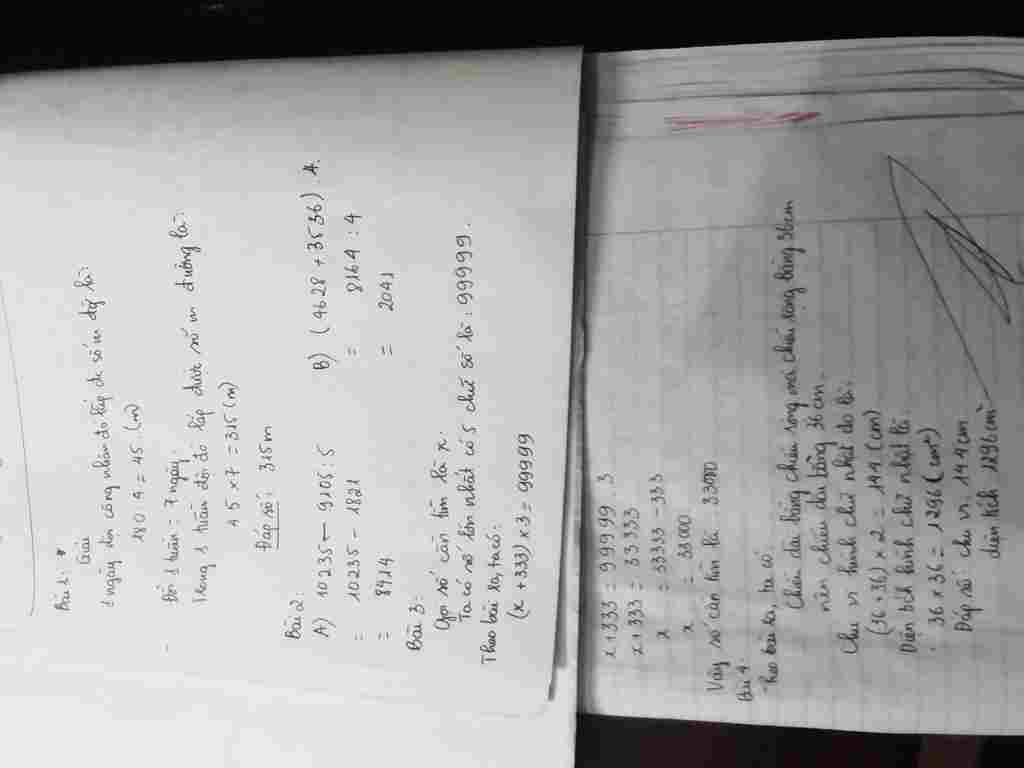 Bài 1:
Giải
1 ngày đội công nhân đó lắp đc số m đg là:
180 4 = 45 (m)
Đổi 1 tuần = 7 ngày
Trong 1 tuần đội đó lắp được số m đường là:
45 x 7 = 315 (m)
Đáp số: 315m
Bài 2:
A) 10235 - 9105 : 5
= 10235 - 1821
= 8414
B) (4628 + 3536) : 4
= 8164 : 4
= 2041
Bài 3:
Gọi số cần tìm là x.
Ta có số lớn nhất có 5 chữ số là: 99999.
Theo bài ra, ta có:
(x + 333) x 3 = 99999
x + 333 = 99999 : 3
x + 333 = 33333
x = 33333 - 333
x = 33000
Vậy số cần tìm là 33000
Bài 4:
Theo bài ra, ta có:
Chiều dài bằng chiều rộng mà chiều rộng bằng 36cm
nên chiều dài bằng 36cm.
Chu vi hình chữ nhật đó là:
(36+36) x 2 = 144 (cm)
Diện tích hình chữ nhật là:
36 x 36 = 1296 (cm²)
Đáp số: chu vi 144cm
diện tích 1296cm²